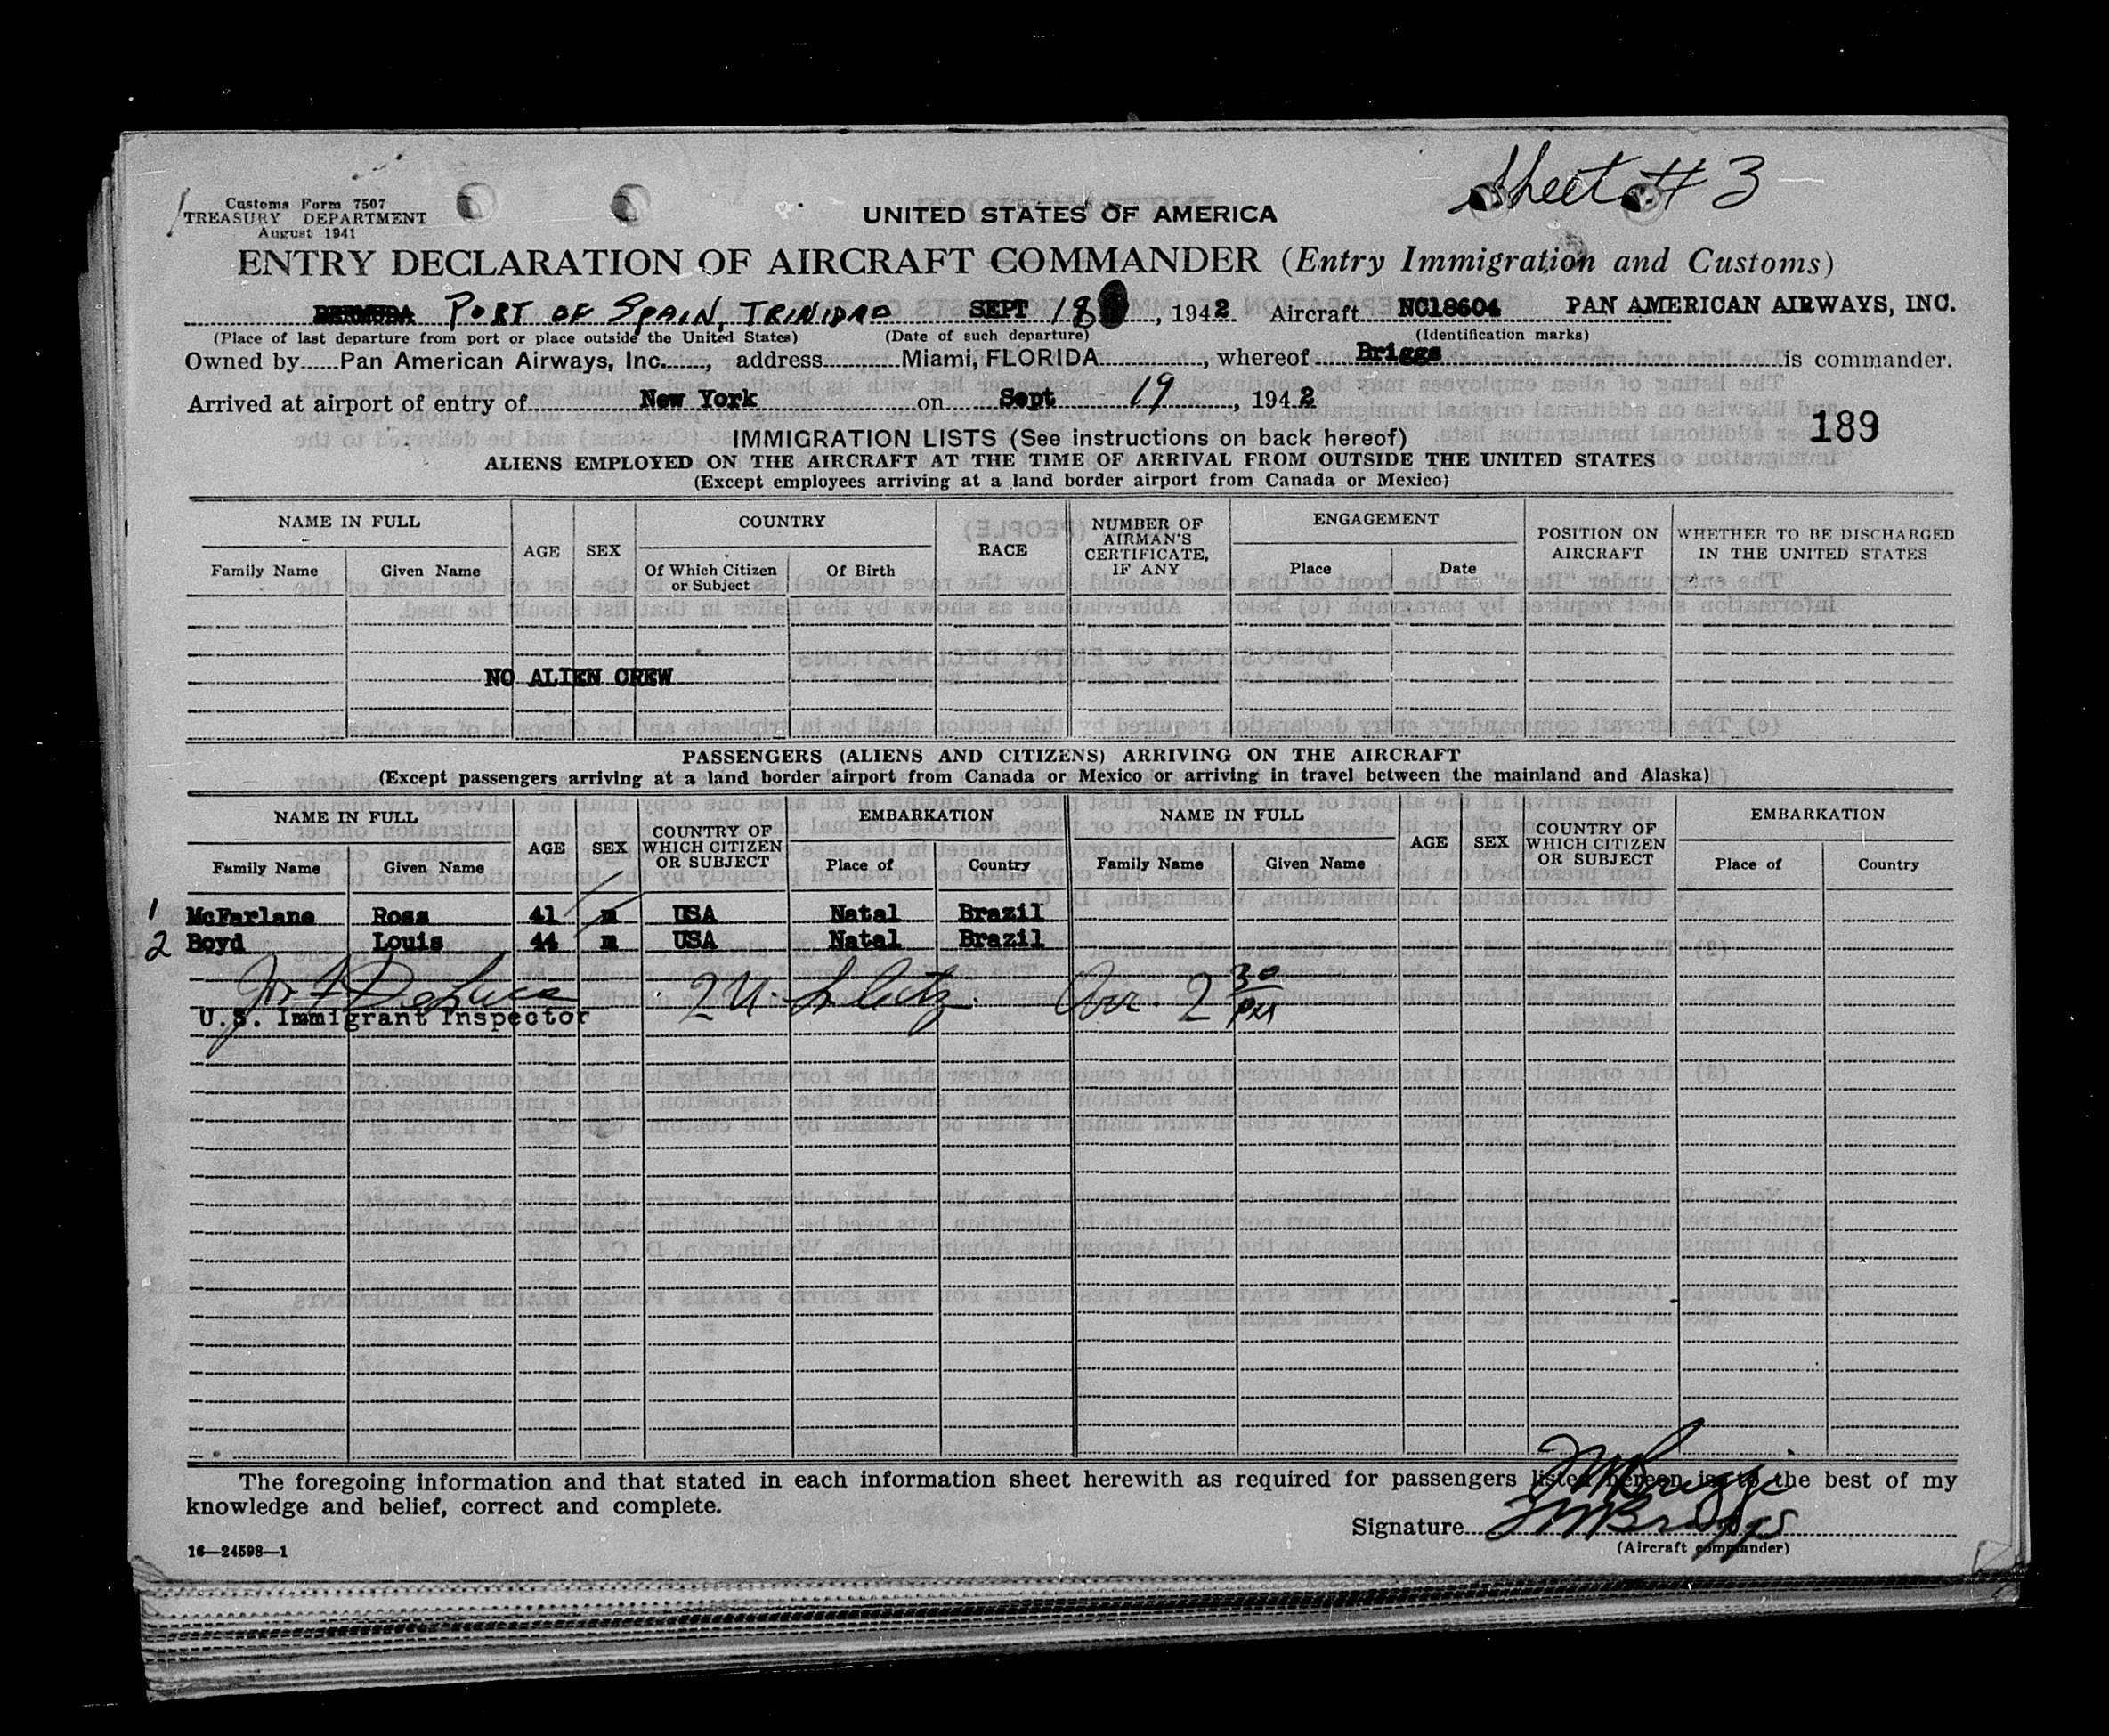 Sheet # 3
Customs Form 7507
TREASURY DEPARTMENT
August 1941
UNITED STATES OF AMERICA
ENTRY DECLARATION OF AIRCRAFT COMMANDER (Entry Immigration and Customs)
BERMUDA PORT OF SPAIN, TRINIDAD SEPT 18, 1942 Aircraft NC18604 PAN AMERICAN AIRWAYS, INC.
(Place of last departure from port or place outside the United States) (Date of such departure) (Identification marks)
Owned by Pan American Airways, Inc., address Miami, FLORIDA, whereof Briggs is commander.
Arrived at airport of entry of New York on Sept 19, 1942
189
IMMIGRATION LISTS (See instructions on back hereof)
ALIENS EMPLOYED ON THE AIRCRAFT AT THE TIME OF ARRIVAL FROM OUTSIDE THE UNITED STATES
(Except employees arriving at a land border airport from Canada or Mexico)
NAME IN FULL AGE SEX COUNTRY RACE NUMBER OF AIRMAN'S CERTIFICATE, IF ANY ENGAGEMENT POSITION ON AIRCRAFT WHETHER TO BE DISCHARGED IN THE UNITED STATES
Family Name Given Name Of Which Citizen or Subject Of Birth Place Date
NO ALIEN CREW
PASSENGERS (ALIENS AND CITIZENS) ARRIVING ON THE AIRCRAFT
(Except passengers arriving at a land border airport from Canada or Mexico or arriving in travel between the mainland and Alaska)
NAME IN FULL AGE SEX COUNTRY OF WHICH CITIZEN OR SUBJECT EMBARKATION NAME IN FULL AGE SEX COUNTRY OF WHICH CITIZEN OR SUBJECT EMBARKATION
Family Name Given Name Place of Country Family Name Given Name Place of Country
1 McFarlane Ross 41 m USA Natal Brazil
2 Boyd Louis 44 m USA Natal Brazil
Arr. 2 30 PM
U.S. Immigrant Inspector
The foregoing information and that stated in each information sheet herewith as required for passengers listed hereon is, to the best of my
knowledge and belief, correct and complete.
Signature Briggs
(Aircraft commander)
16—24598—1